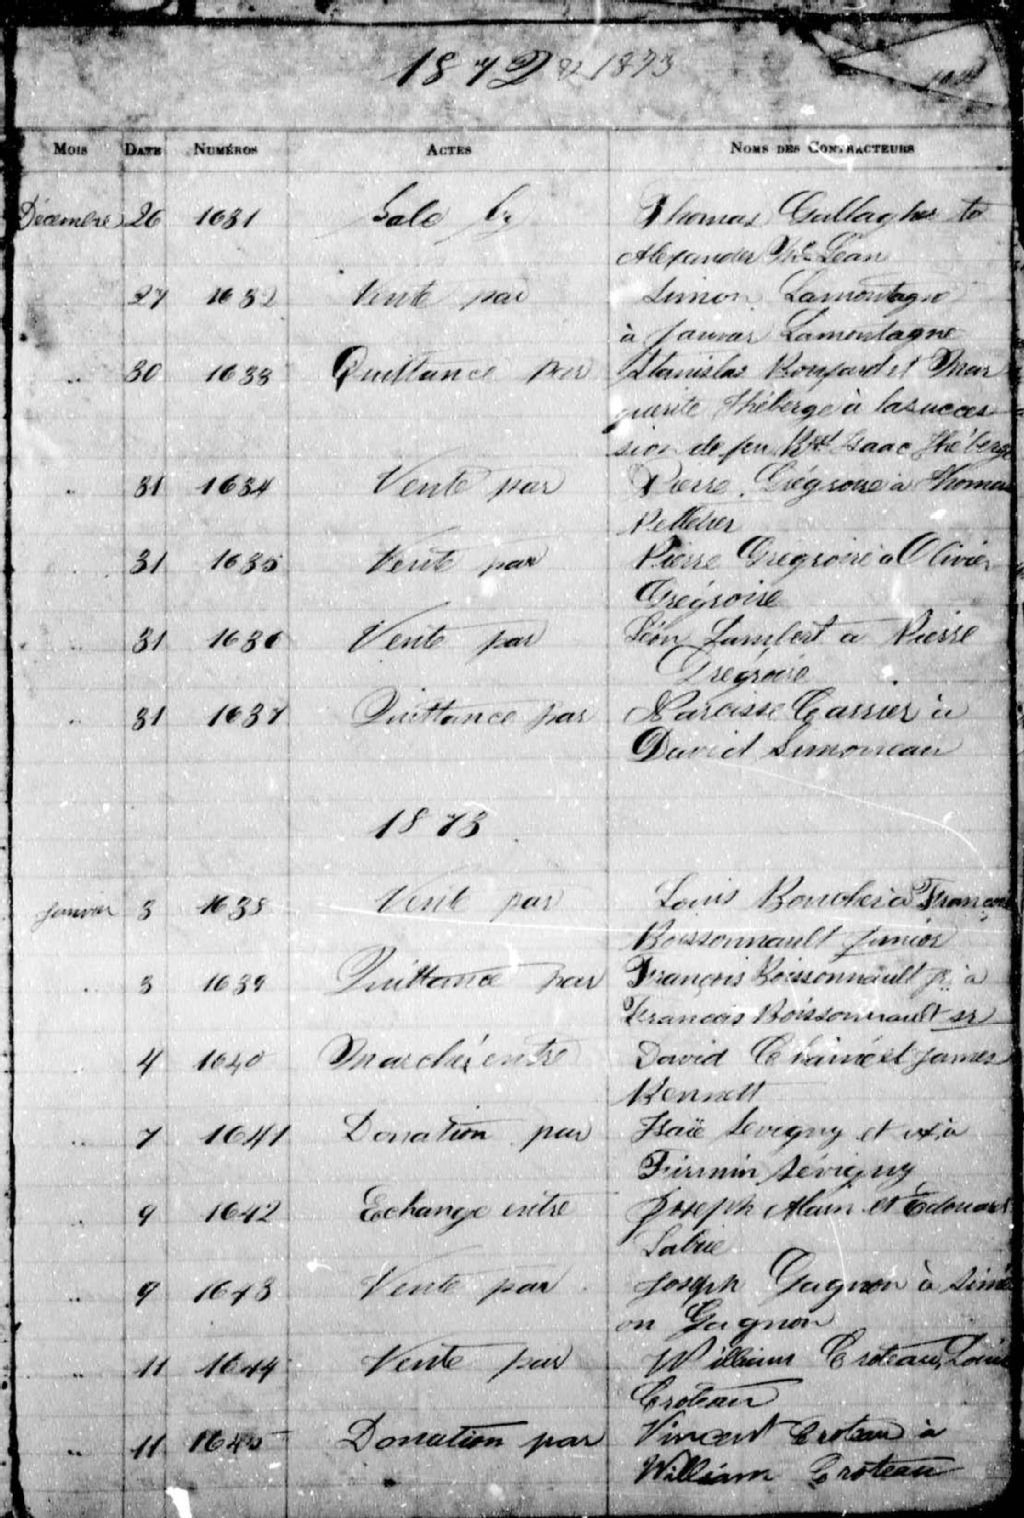 1872 & 1873
Mois Date Numéros Actes Noms des Contracteurs
Décembre 26 1631 Sale by Thomas Gallagher to
Alexander McLean
27 1632 Vente par Simon Lamontagne
à Janvier Lamontagne
" 30 1633 Quittance par Stanislas Rompard et Mar
guerite Théberge à la succes
sion de feu Bpt Isaac Théberge
" 31 1634 Vente par Pierre Grégoire à Thomas
Pelletier
" 31 1635 Vente par Pierre Grégoire à Olivier
Grégoire
" 31 1636 Vente par Léon Lambert à Pierre
Grégoire
" 31 1637 Quittance par Narcisse Carrier à
David Simoneau
1873
Janvier 3 1638 Vente par Louis Boucher à François
Boissonnault junior
" 3 1639 Quittance par François Boissonnault jr à
François Boissonnault sr
" 4 1640 Marché entre David Chainé et James
Kennett
" 7 1641 Donation par Isaïe Sevigny et ux à
Firmin Sévigny
" 9 1642 Echange entre Joseph Alain et Edouard
Labrie
" 9 1643 Vente par Joseph Gagnon à Simé
on Gagnon
" 11 1644 Vente par William Croteau, Louis
Croteau
" 11 1645 Donation par Vincent Croteau à
William Croteau